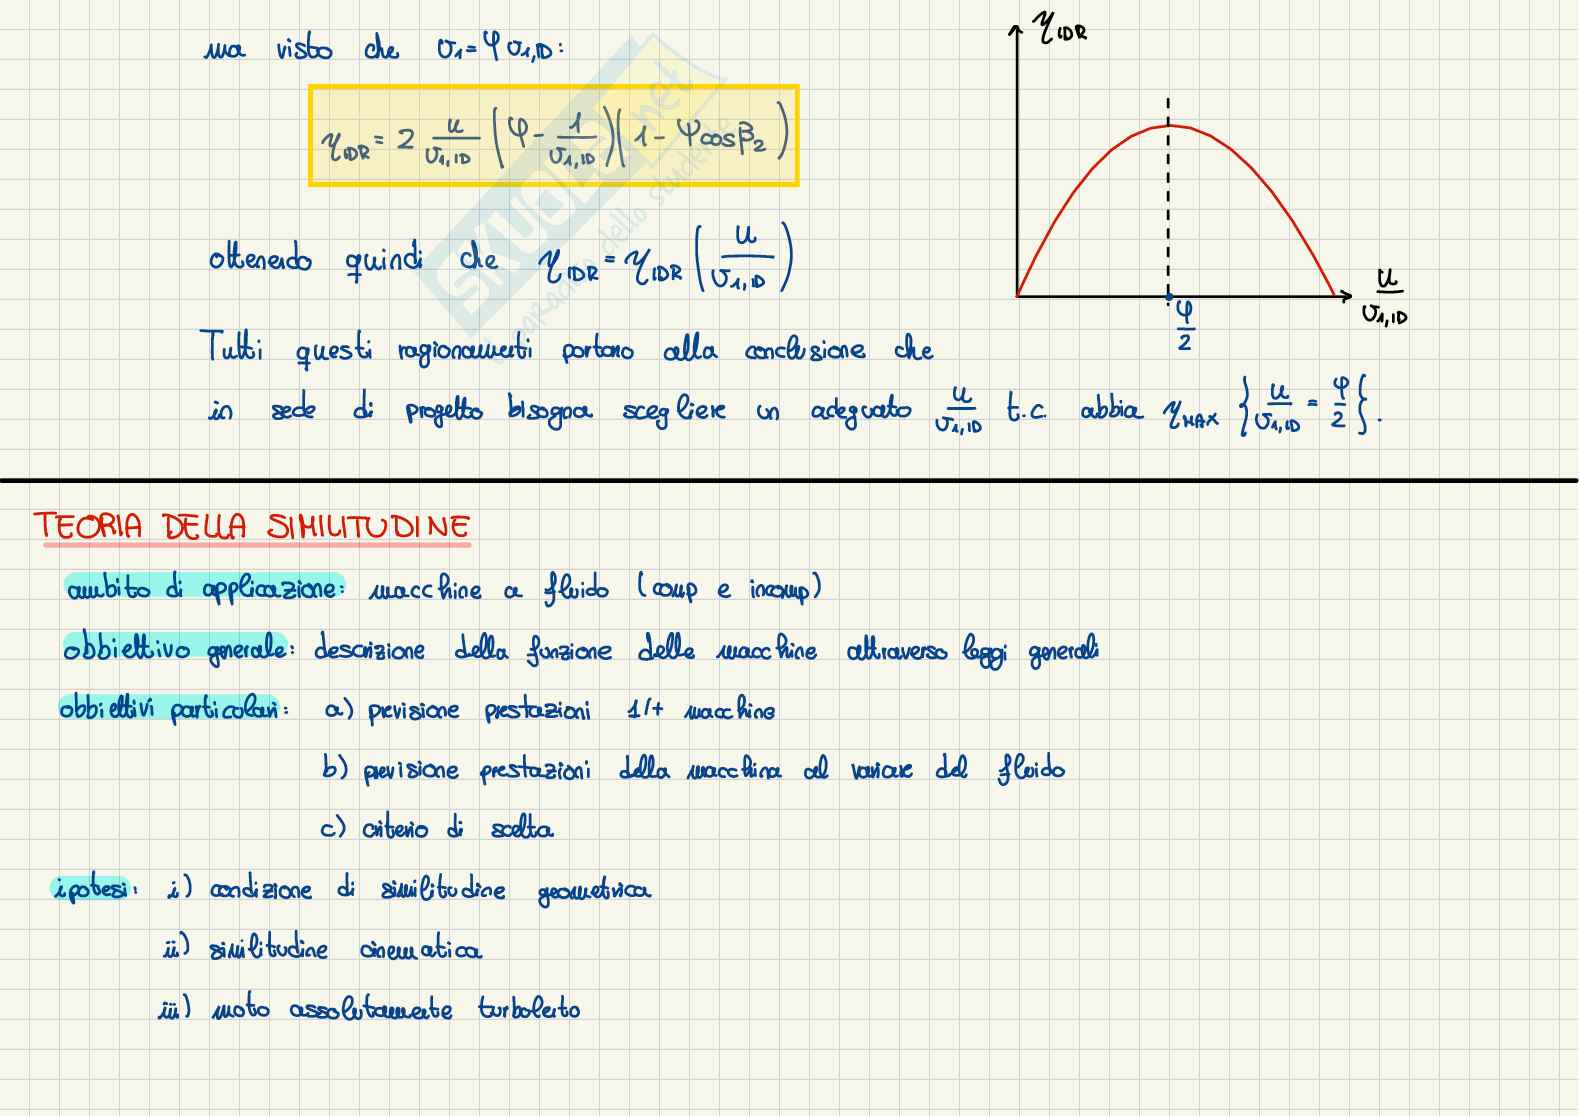 ma visto che v₁=φ v₁,ID:
η_IDR = 2 u/v₁,ID (φ - 1/v₁,ID)(1 - ψcosβ₂)
ottenendo quindi che η_IDR = η_IDR (u/v₁,ID)
η_IDR
u/v₁,ID
φ/2
Tutti questi ragionamenti portano alla conclusione che
in sede di progetto bisogna scegliere un adeguato u/v₁,ID t.c. abbia η_MAX {u/v₁,ID = φ/2}.
TEORIA DELLA SIMILITUDINE
ambito di applicazione: macchine a fluido (comp e incomp)
obbiettivo generale: descrizione della funzione delle macchine attraverso leggi generali
obbiettivi particolari: a) previsione prestazioni 1/+ macchine
b) previsione prestazioni della macchina al variare del fluido
c) criterio di scelta
ipotesi: i) condizione di similitudine geometrica
ii) similitudine cinematica
iii) moto assolutamente turbolento
SKUOLA.net
dello studente